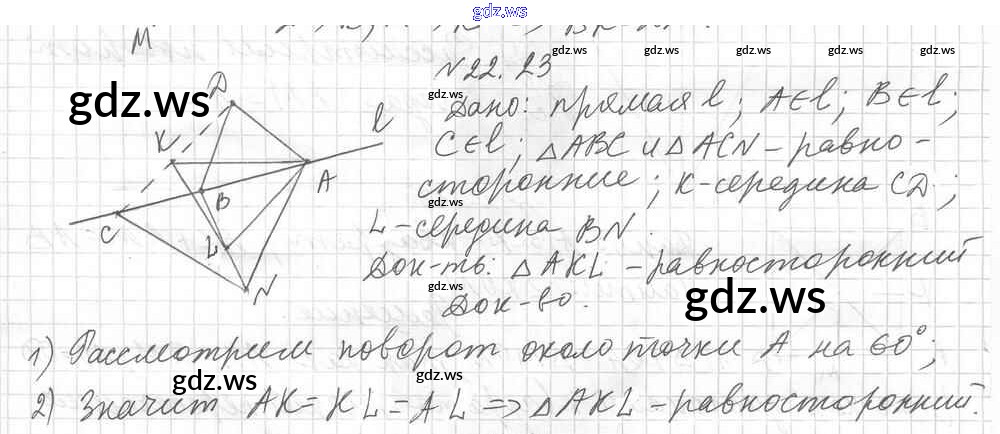 gdz.ws
M
N22.23
Дано: прямая l; A∈l; B∈l;
C∈l; △ABC и △ACN - равно-
сторонние; K-середина CD;
L-середина BN.
Док-ть: △AKL - равносторонний
Док-во.
1) Рассмотрим поворот около точки A на 60°;
2) Значит AK = KL = AL => △AKL - равносторонний.
D
K
l
A
B
C
L
N
gdz.ws
gdz.ws
gdz.ws
gdz.ws
gdz.ws
gdz.ws
gdz.ws
gdz.ws
gdz.ws
gdz.ws
gdz.ws
gdz.ws
gdz.ws